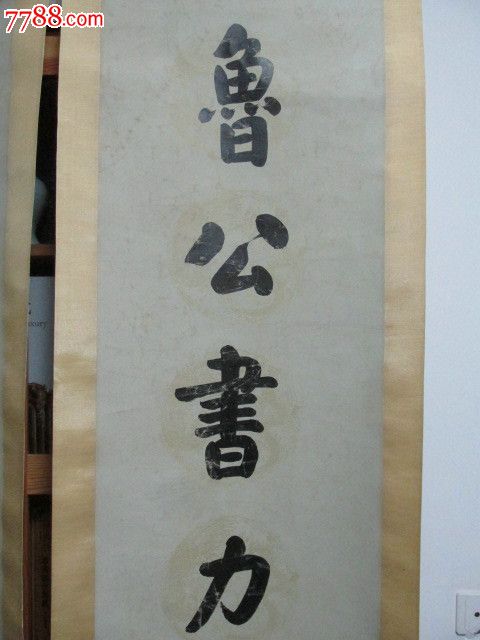 7788.com
魯公書力